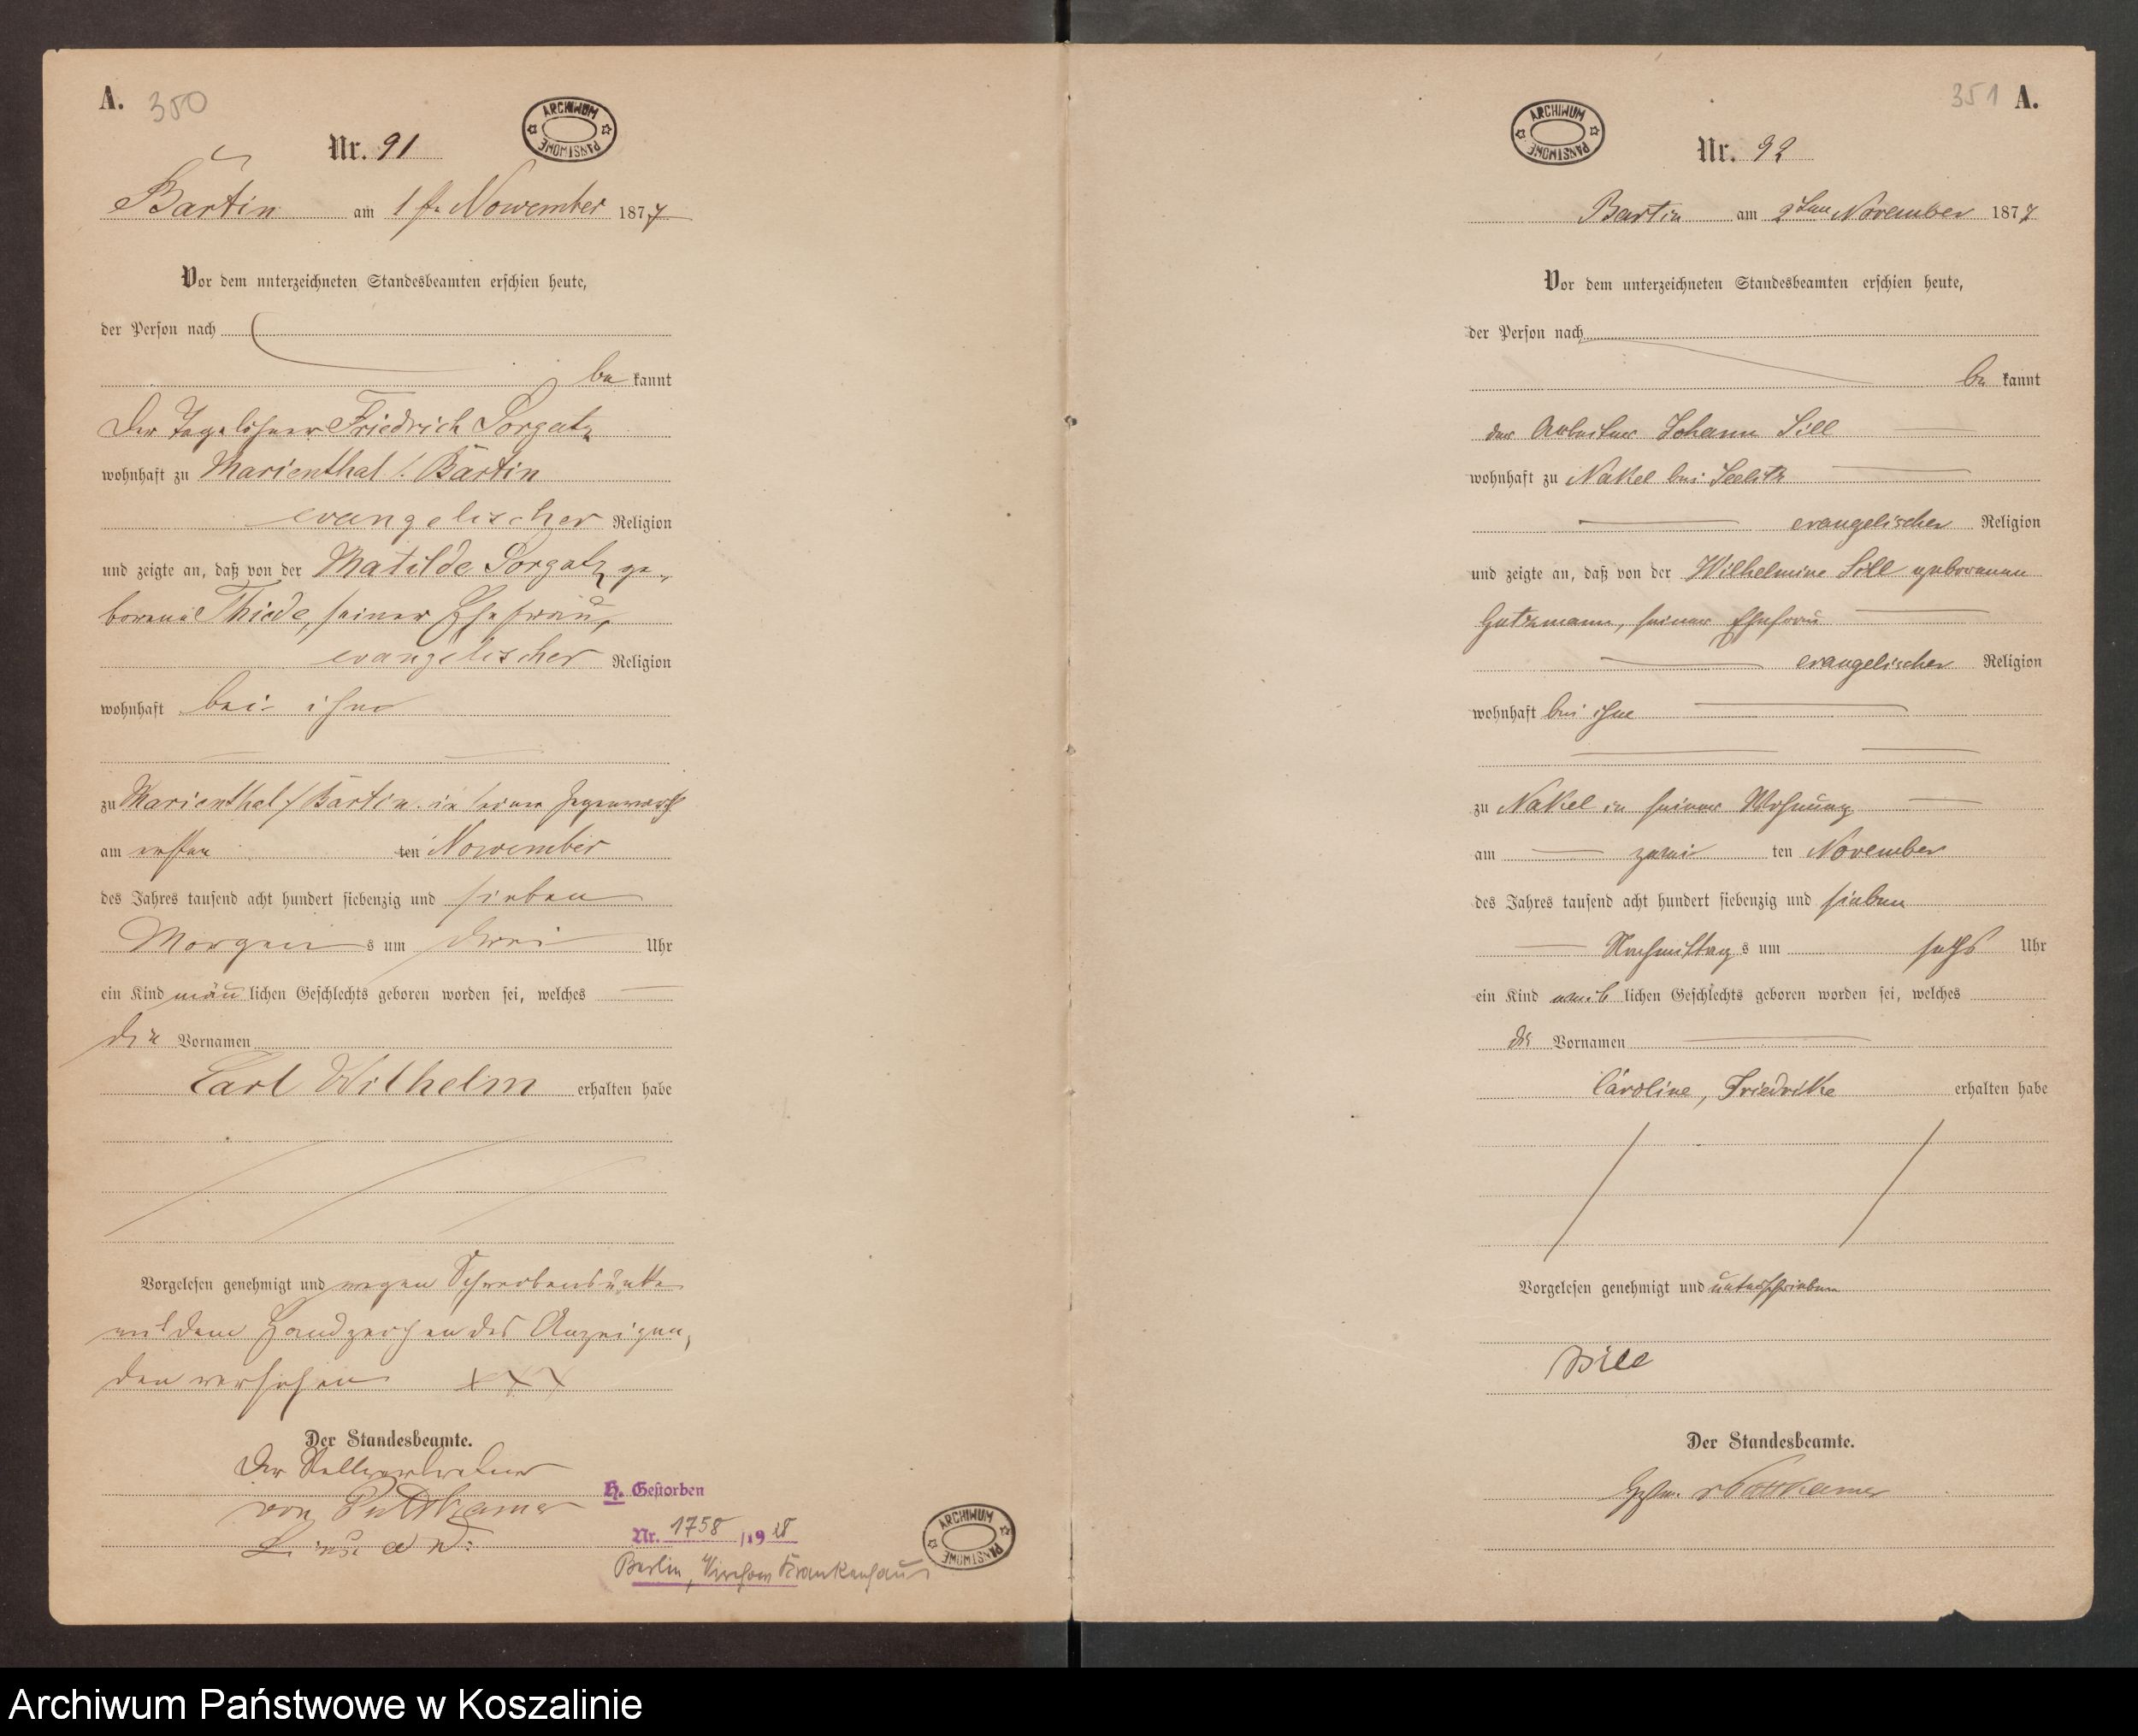 A. 350
ARCHIWUM PAŃSTWOWE
Nr. 91
Bartin am 1 ſt. November 1877
Vor dem unterzeichneten Standesbeamten erſchien heute,
der Perſon nach
be kannt
Der Tagelöhner Friedrich Sorgatz
wohnhaft zu Marienthal /. Bartin
evangelischer Religion
und zeigte an, daß von der Matilde Sorgatz ge-
borene Thiede, ſeiner Ehefrau,
evangelischer Religion
wohnhaft bei ihm
zu Marienthal / Bartin in ſeiner Gegenwart
am erſten ten November
des Jahres tauſend acht hundert ſiebenzig und ſieben
Morgen s um Uhr
ein Kind männ lichen Geſchlechts geboren worden ſei, welches
die Vornamen
Carl Wilhelm erhalten habe
Vorgeleſen genehmigt und wegen
mit dem Handzeichen des Anzeigen-
den verſehen XXX
Der Standesbeamte.
Der Stellvertreter
von Puttkamer
H. Geſtorben
Nr. 1758 /19 28
Berlin, Virchow Krankenhaus
ARCHIWUM PAŃSTWOWE
351 A.
ARCHIWUM PAŃSTWOWE
Nr. 92
Bartin am 2ten November 1877
Vor dem unterzeichneten Standesbeamten erſchien heute,
der Perſon nach
be kannt
der Arbeiter Johann Sill
wohnhaft zu Nakel bei Seelitz
evangelischer Religion
und zeigte an, daß von der Wilhelmine Sill geborenen
Gutzmann, ſeiner Ehefrau
evangelischer Religion
wohnhaft bei ihm
zu Nakel in ſeiner Wohnung
am zwei ten November
des Jahres tauſend acht hundert ſiebenzig und ſieben
Nachmittag s um ſechs Uhr
ein Kind weib lichen Geſchlechts geboren worden ſei, welches
die Vornamen
Caroline, Friedrike erhalten habe
Vorgeleſen genehmigt und unterſchrieben
Sill
Der Standesbeamte.
v Puttkamer
Archiwum Państwowe w Koszalinie